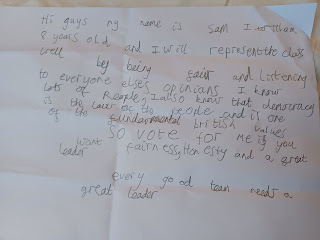 Hi guys my name is Sam I
8 years old and I will represent the class
well by being fair and Listening
to everyone else's opinians I know
Lots of People, I also know that democracy
is the of the people and is one
of the fundamental british values
So vote for me is you
want fairness, Honesty and a great
leader
every good team needs a
great leader